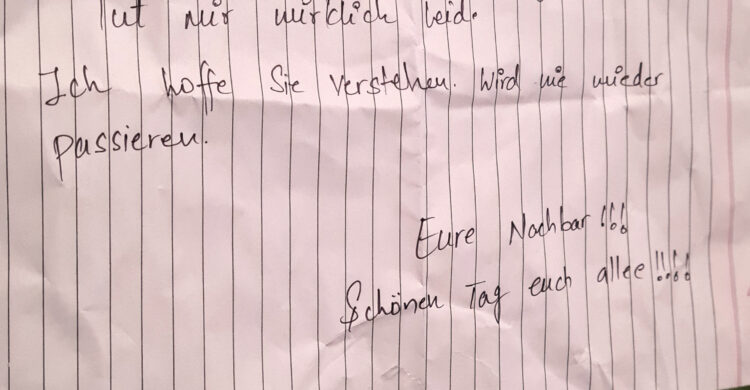 Tut mir wirklich leid.
Ich hoffe Sie verstehen. Wird nie wieder
passieren.
Eure Nachbar!!!
Schönen Tag euch allee!!!!